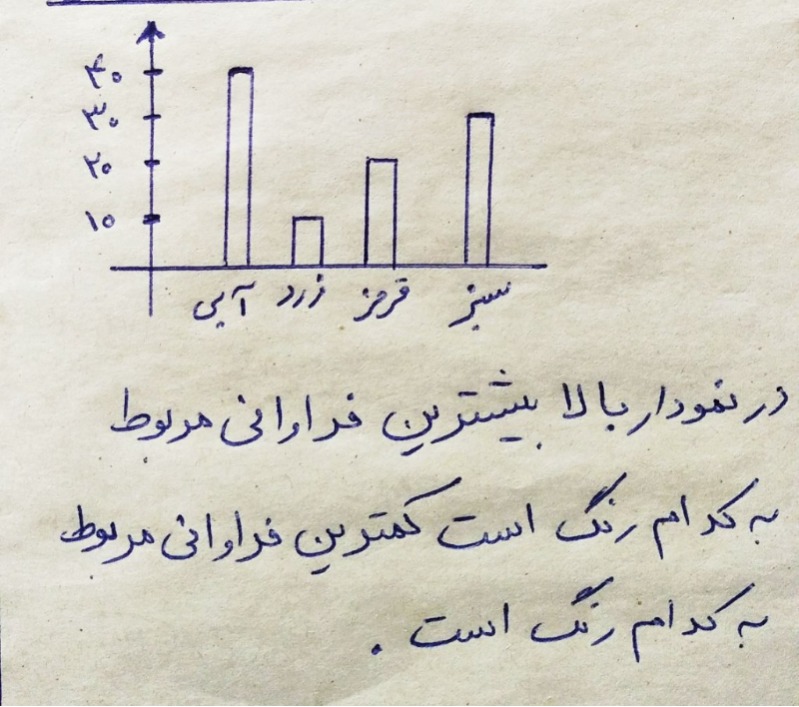 ۴۰
۳۰
۲۰
۱۰
آبی زرد قرمز سبز
در نمودار بالا بیشترین فراوانی مربوط
به کدام رنگ است کمترین فراوانی مربوط
به کدام رنگ است .